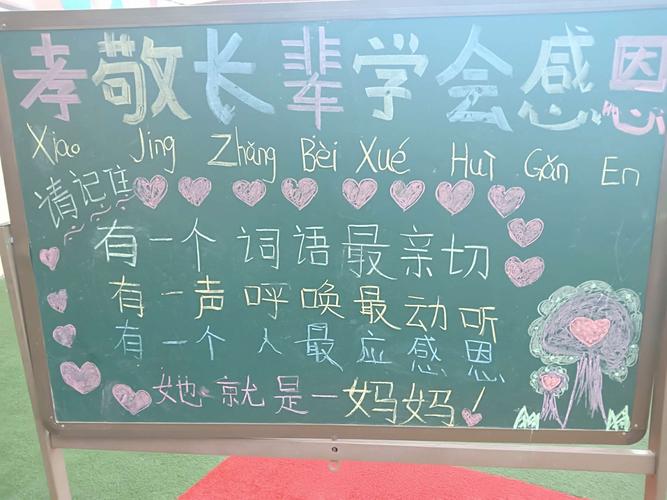 孝敬长辈学会感恩
Xiao Jing Zhǎng Bèi Xué Huì Gǎn En
请记住
有一个词语最亲切
有一声呼唤最动听
有一个人最应感恩
她就是—妈妈!